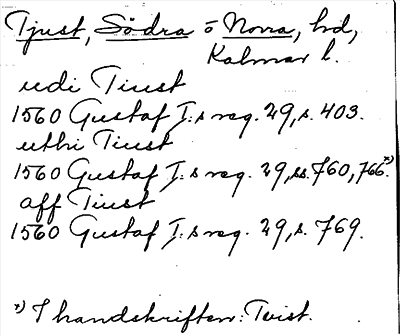 Tjust, Södra o Norra, hd,
Kalmar l.
udi Tiust
1560 Gustaf I:s reg. 29, s. 403.
uthi Tiust
1560 Gustaf I:s reg. 29, ss. 760, 766.*)
aff Tiust
1560 Gustaf I:s reg. 29, s. 769.
*) I handskriften: Tvist.